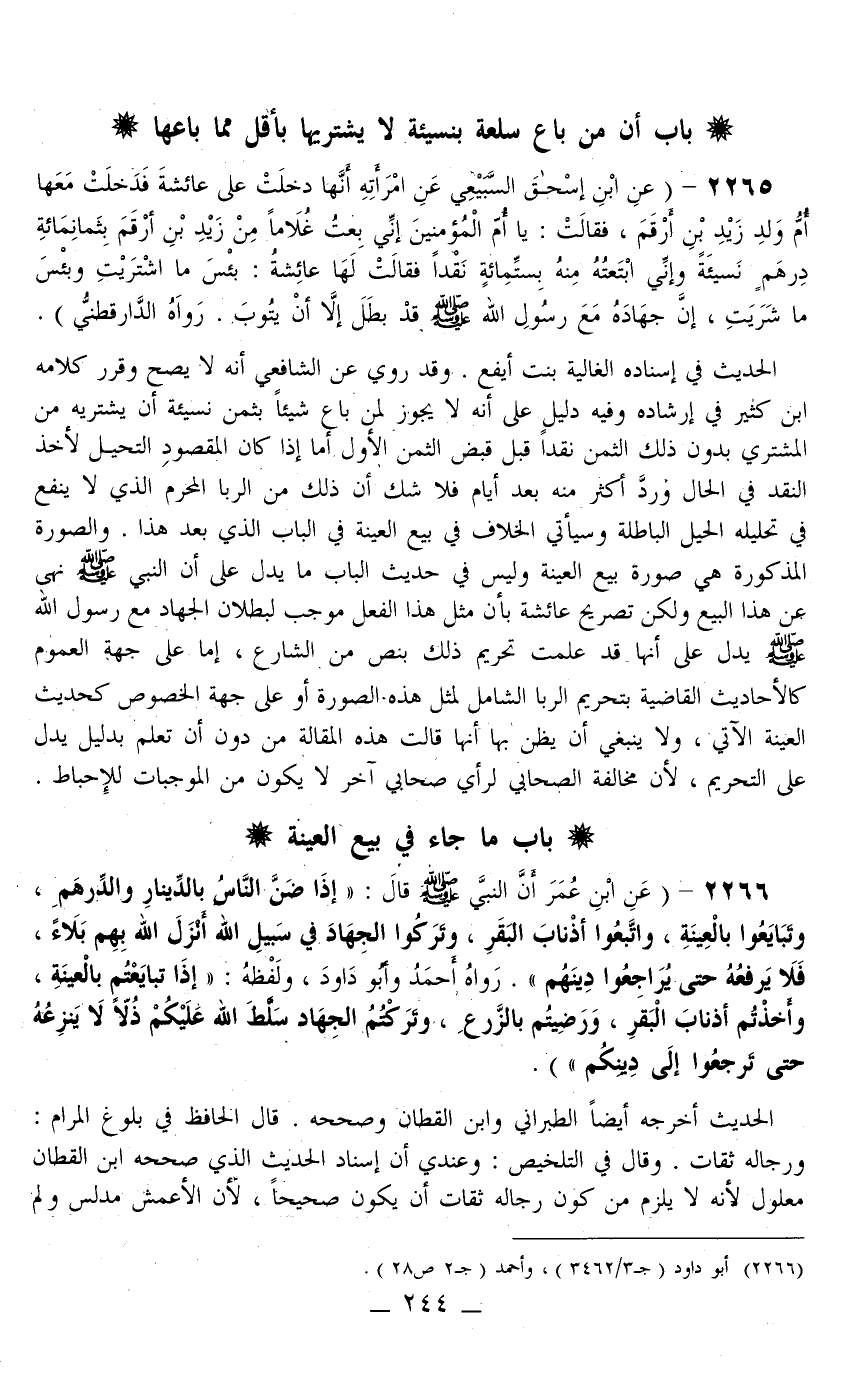 باب أن من باع سلعة بنسيئة لا يشتريها بأقل مما باعها
٢٢٦٥ - ( عنِ ابْنِ إسْحٰقَ السَّبَيْعِي عَنِ امْرَأَتِهِ أَنَّها دخلَتْ على عائشةَ فَدَخلَتْ مَعَها
أُمُّ وَلدِ زَيْدِ بْنِ أَرْقَمَ ، فقالَتْ : يا أُمّ الْمُؤمنينَ إنِّي بِعتُ غُلَاماً مِنْ زَيْدِ بْنِ أرْقَمَ بثَمانِمَائةِ
دِرهَمٍ نَسيئَةً وإنِّي ابْتَعتُهُ مِنهُ بِستِّمِائةٍ نَقْداً فقالَتْ لَهَا عائِشةُ : بئْسَ ما اشْتَريْتِ وبئْسَ
ما شَرَيَتِ ، إنَّ جهَادَهُ مَعَ رسُولِ الله ﷺ قدْ بطَلَ إلَّا أنْ يتُوبَ . رَواَهُ الدَّارقطنيُّ ) .
الحديث في إسناده الغالية بنت أيفع . وقد روي عن الشافعي أنه لا يصح وقرر كلامه
ابن كثير في إرشاده وفيه دليل على أنه لا يجوز لمن باع شيئاً بثمن نسيئة أن يشتريه من
المشتري بدون ذلك الثمن نقداً قبل قبض الثمن الأول أما إذا كان المقصود التحيل لأخذ
النقد في الحال وردَّ أكثر منه بعد أيام فلا شك أن ذلك من الربا المحرم الذي لا ينفع
في تحليله الحيل الباطلة وسيأتي الخلاف في بيع العينة في الباب الذي بعد هذا . والصورة
المذكورة هي صورة بيع العينة وليس في حديث الباب ما يدل على أن النبي ﷺ نهى
عن هذا البيع ولكن تصريح عائشة بأن مثل هذا الفعل موجب لبطلان الجهاد مع رسول الله
ﷺ يدل على أنها قد علمت تحريم ذلك بنص من الشارع ، إما على جهة العموم
كالأحاديث القاضية بتحريم الربا الشامل لمثل هذه الصورة أو على جهة الخصوص كحديث
العينة الآتي ، ولا ينبغي أن يظن بها أنها قالت هذه المقالة من دون أن تعلم بدليل يدل
على التحريم ، لأن مخالفة الصحابي لرأي صحابي آخر لا يكون من الموجبات للإحباط .
باب ما جاء في بيع العينة
٢٢٦٦ - ( عَنِ ابْنِ عُمَرَ أَنَّ النبيَّ ﷺ قالَ : « إذَا ضَنَّ النَّاسُ بالدِّينارِ والدِّرهَمِ ،
وتَبَايَعُوا بالْعِينَةِ ، واتَّبعُوا أذْنابَ البَقَرِ ، وتَركُوا الجهَادَ في سَبيلِ الله أَنْزَلَ الله بِهِم بَلَاءً ،
فَلَا يَرفعُهُ حتى يُرَاجعُوا دِينَهُم » . رَواهُ أَحمَدُ وأبُو دَاودَ ، ولَفْظهُ : « إذَا تبايَعْتُم بالْعينَةِ ،
وأخذْتُم أذنابَ الْبَقرِ ، وَرَضِيتُم بالزَّرعِ ، وتَركْتُمُ الجهَاد سَلَّطَ الله عَليْكُمْ ذُلّاً لَا يَنزعُهُ
حتى تَرجعُوا إلَى دِينِكُم » ) .
الحديث أخرجه أيضاً الطبراني وابن القطان وصححه . قال الحافظ في بلوغ المرام :
ورجاله ثقات . وقال في التلخيص : وعندي أن إسناد الحديث الذي صححه ابن القطان
معلول لأنه لا يلزم من كون رجاله ثقات أن يكون صحيحاً ، لأن الأعمش مدلس ولم
(٢٢٦٦) أبو داود ( جـ٣/٣٤٦٢ ) ، وأحمد ( جـ٢ ص٢٨ ) .
_ ٢٤٤ _